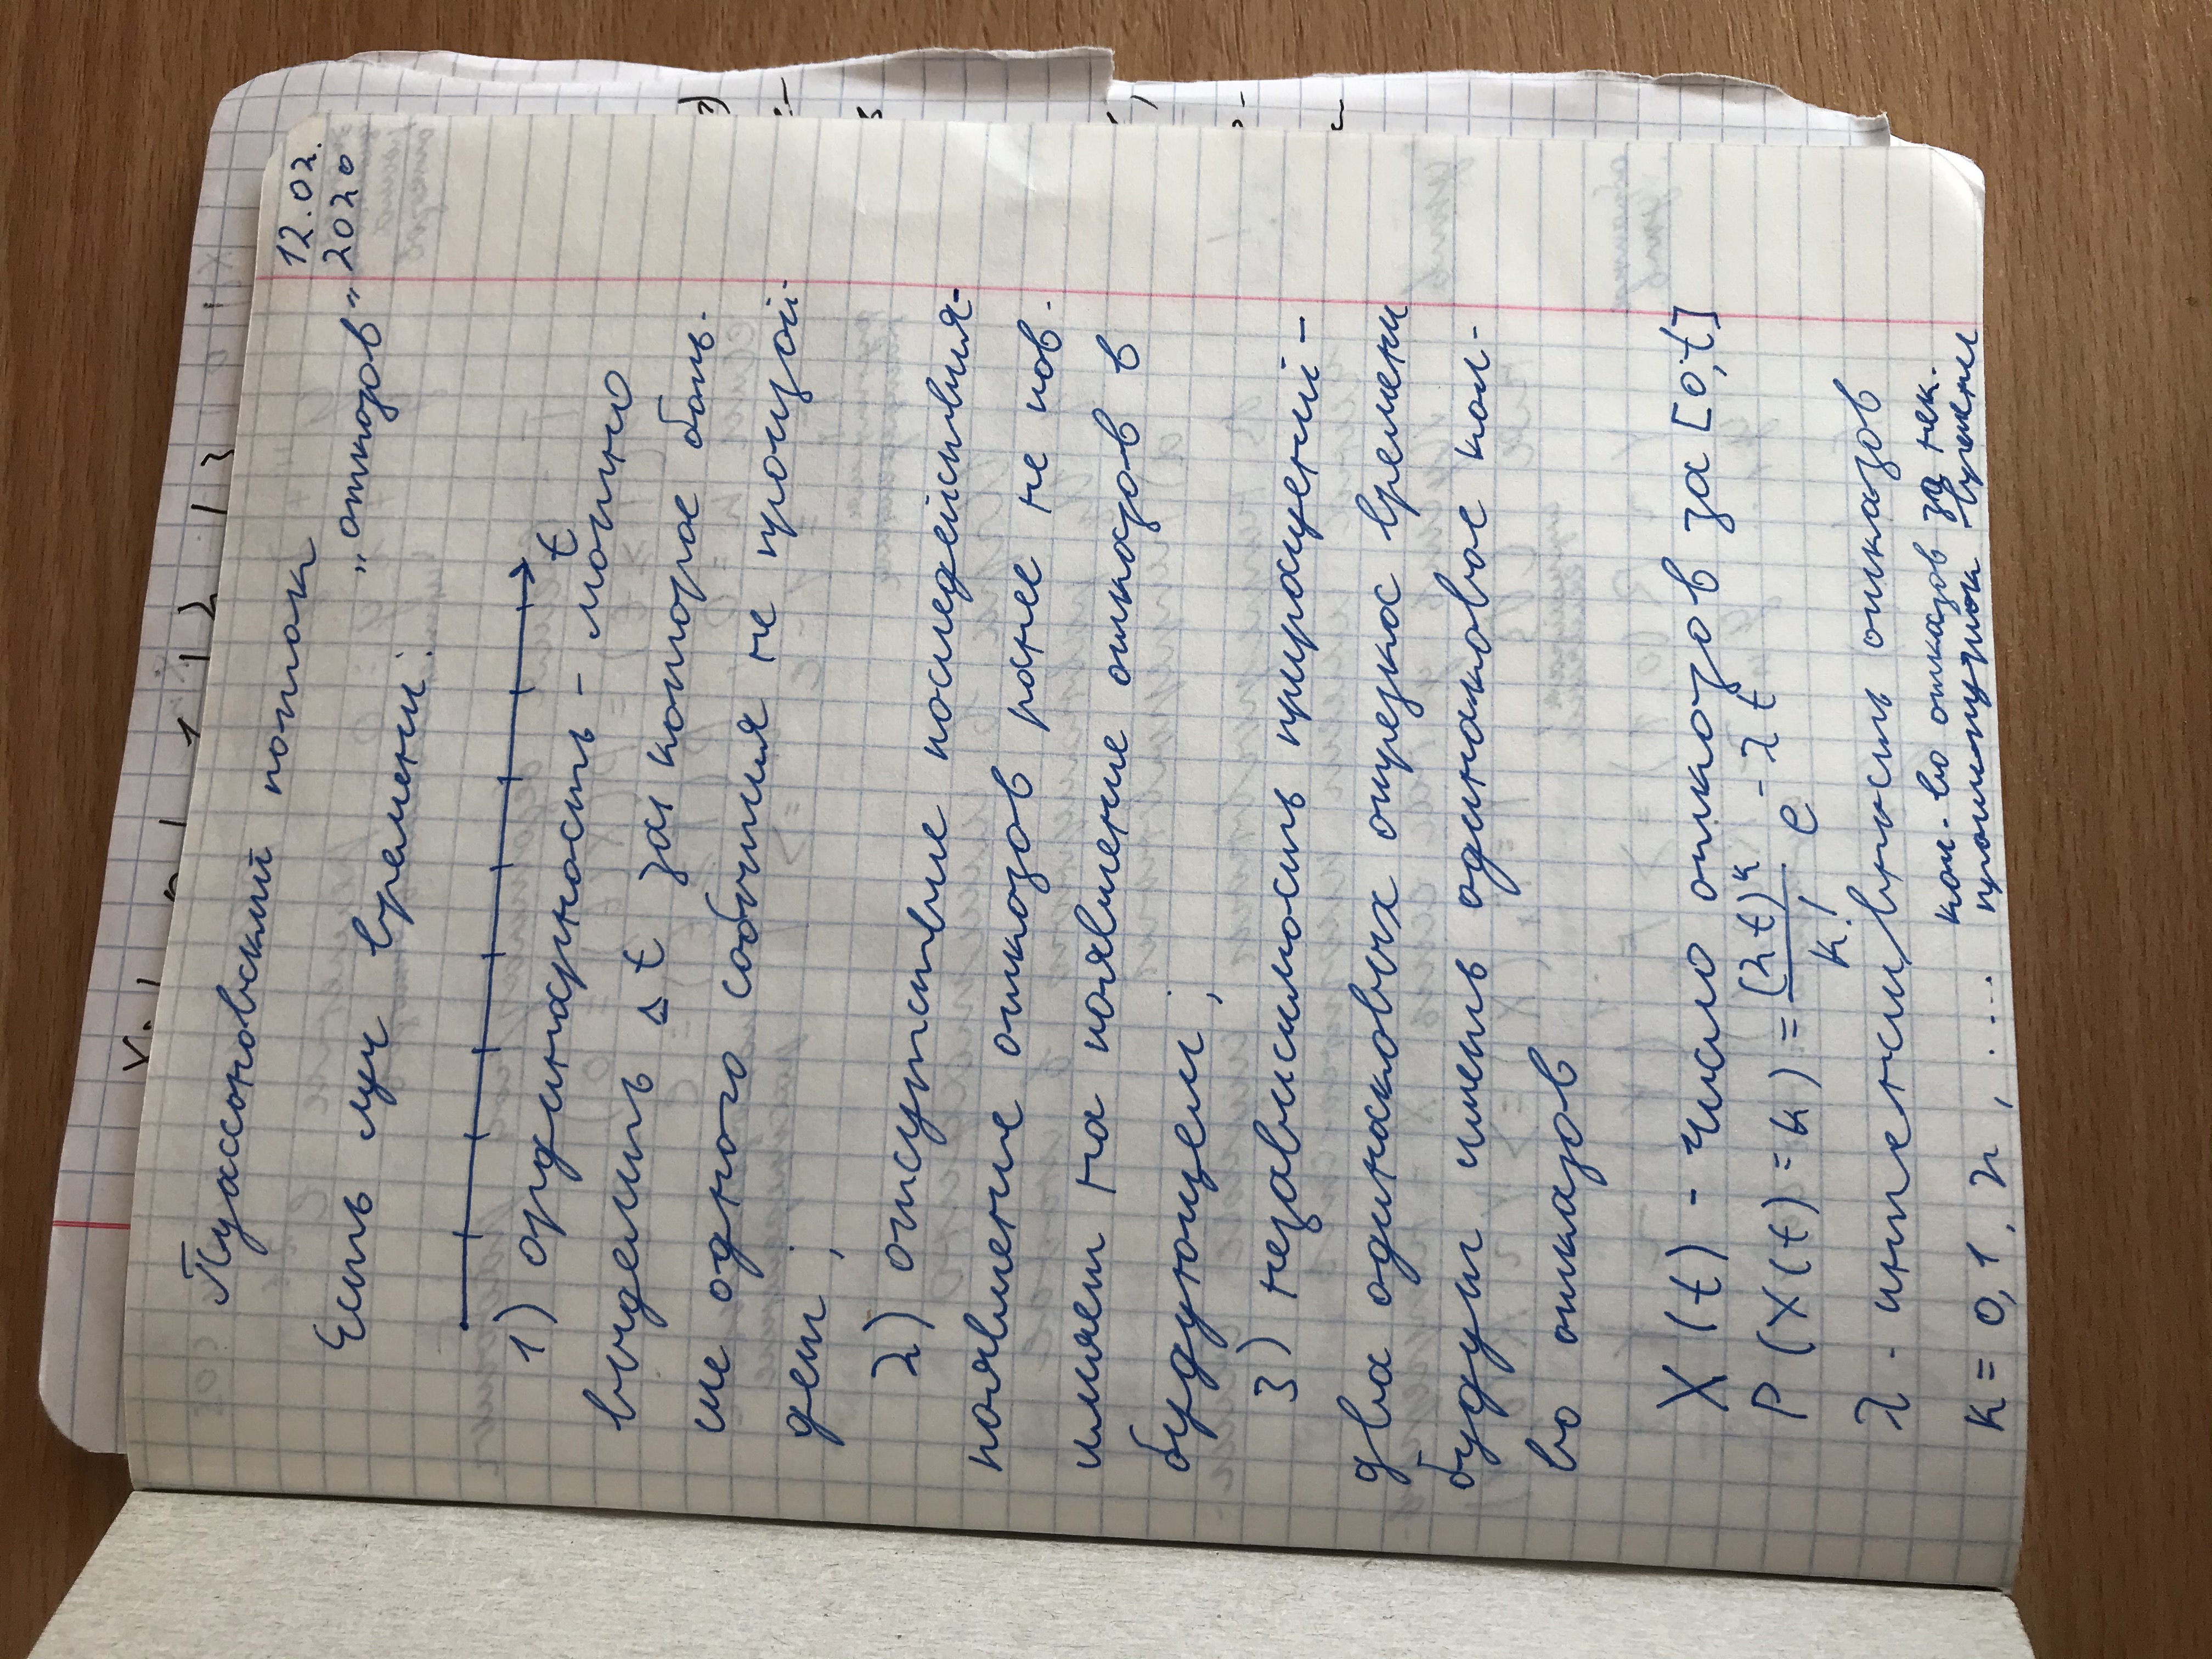 12.02.
2020
Пуассоновский поток
„отказов"
Есть луч времени:
t
1) ординарность - можно
выделить Δt за которое боль-
ше одного события не произой-
дет ;
2) отсутствие последействия-
появление отказов ранее не пов-
лияет на появление отказов в
будующем ;
3) независимость приращений -
два одинаковых отрезка времени
будут иметь одинаковое кол-
во отказов
X(t) - число отказов за [0;t]
P(X(t)=k) = (λt)^k / k! e^{-λt}
λ - интенсивность отказов
кол-во отказов за нек.
промежуток времени
k = 0, 1, 2, ....